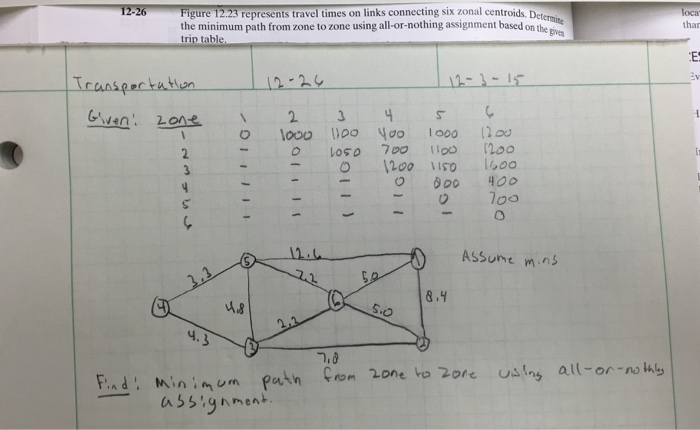 12-26 Figure 12.23 represents travel times on links connecting six zonal centroids. Determine
the minimum path from zone to zone using all-or-nothing assignment based on the given
trip table.
Transportation 12-26 12-3-15
Given: zone 1 2 3 4 5 6
1 0 1000 1100 400 1000 1200
2 - 0 1050 700 1100 1200
3 - - 0 1200 1150 1600
4 - - - 0 800 400
5 - - - - 0 700
6 - - - - - 0
12.6
Assume mins
5 1
3.3 7.2 5.0
4 6 8.4
4.8 5.0
2.2
4.3
3 2
7.8
Find: Minimum path from zone to zone using all-or-nothing
assignment.